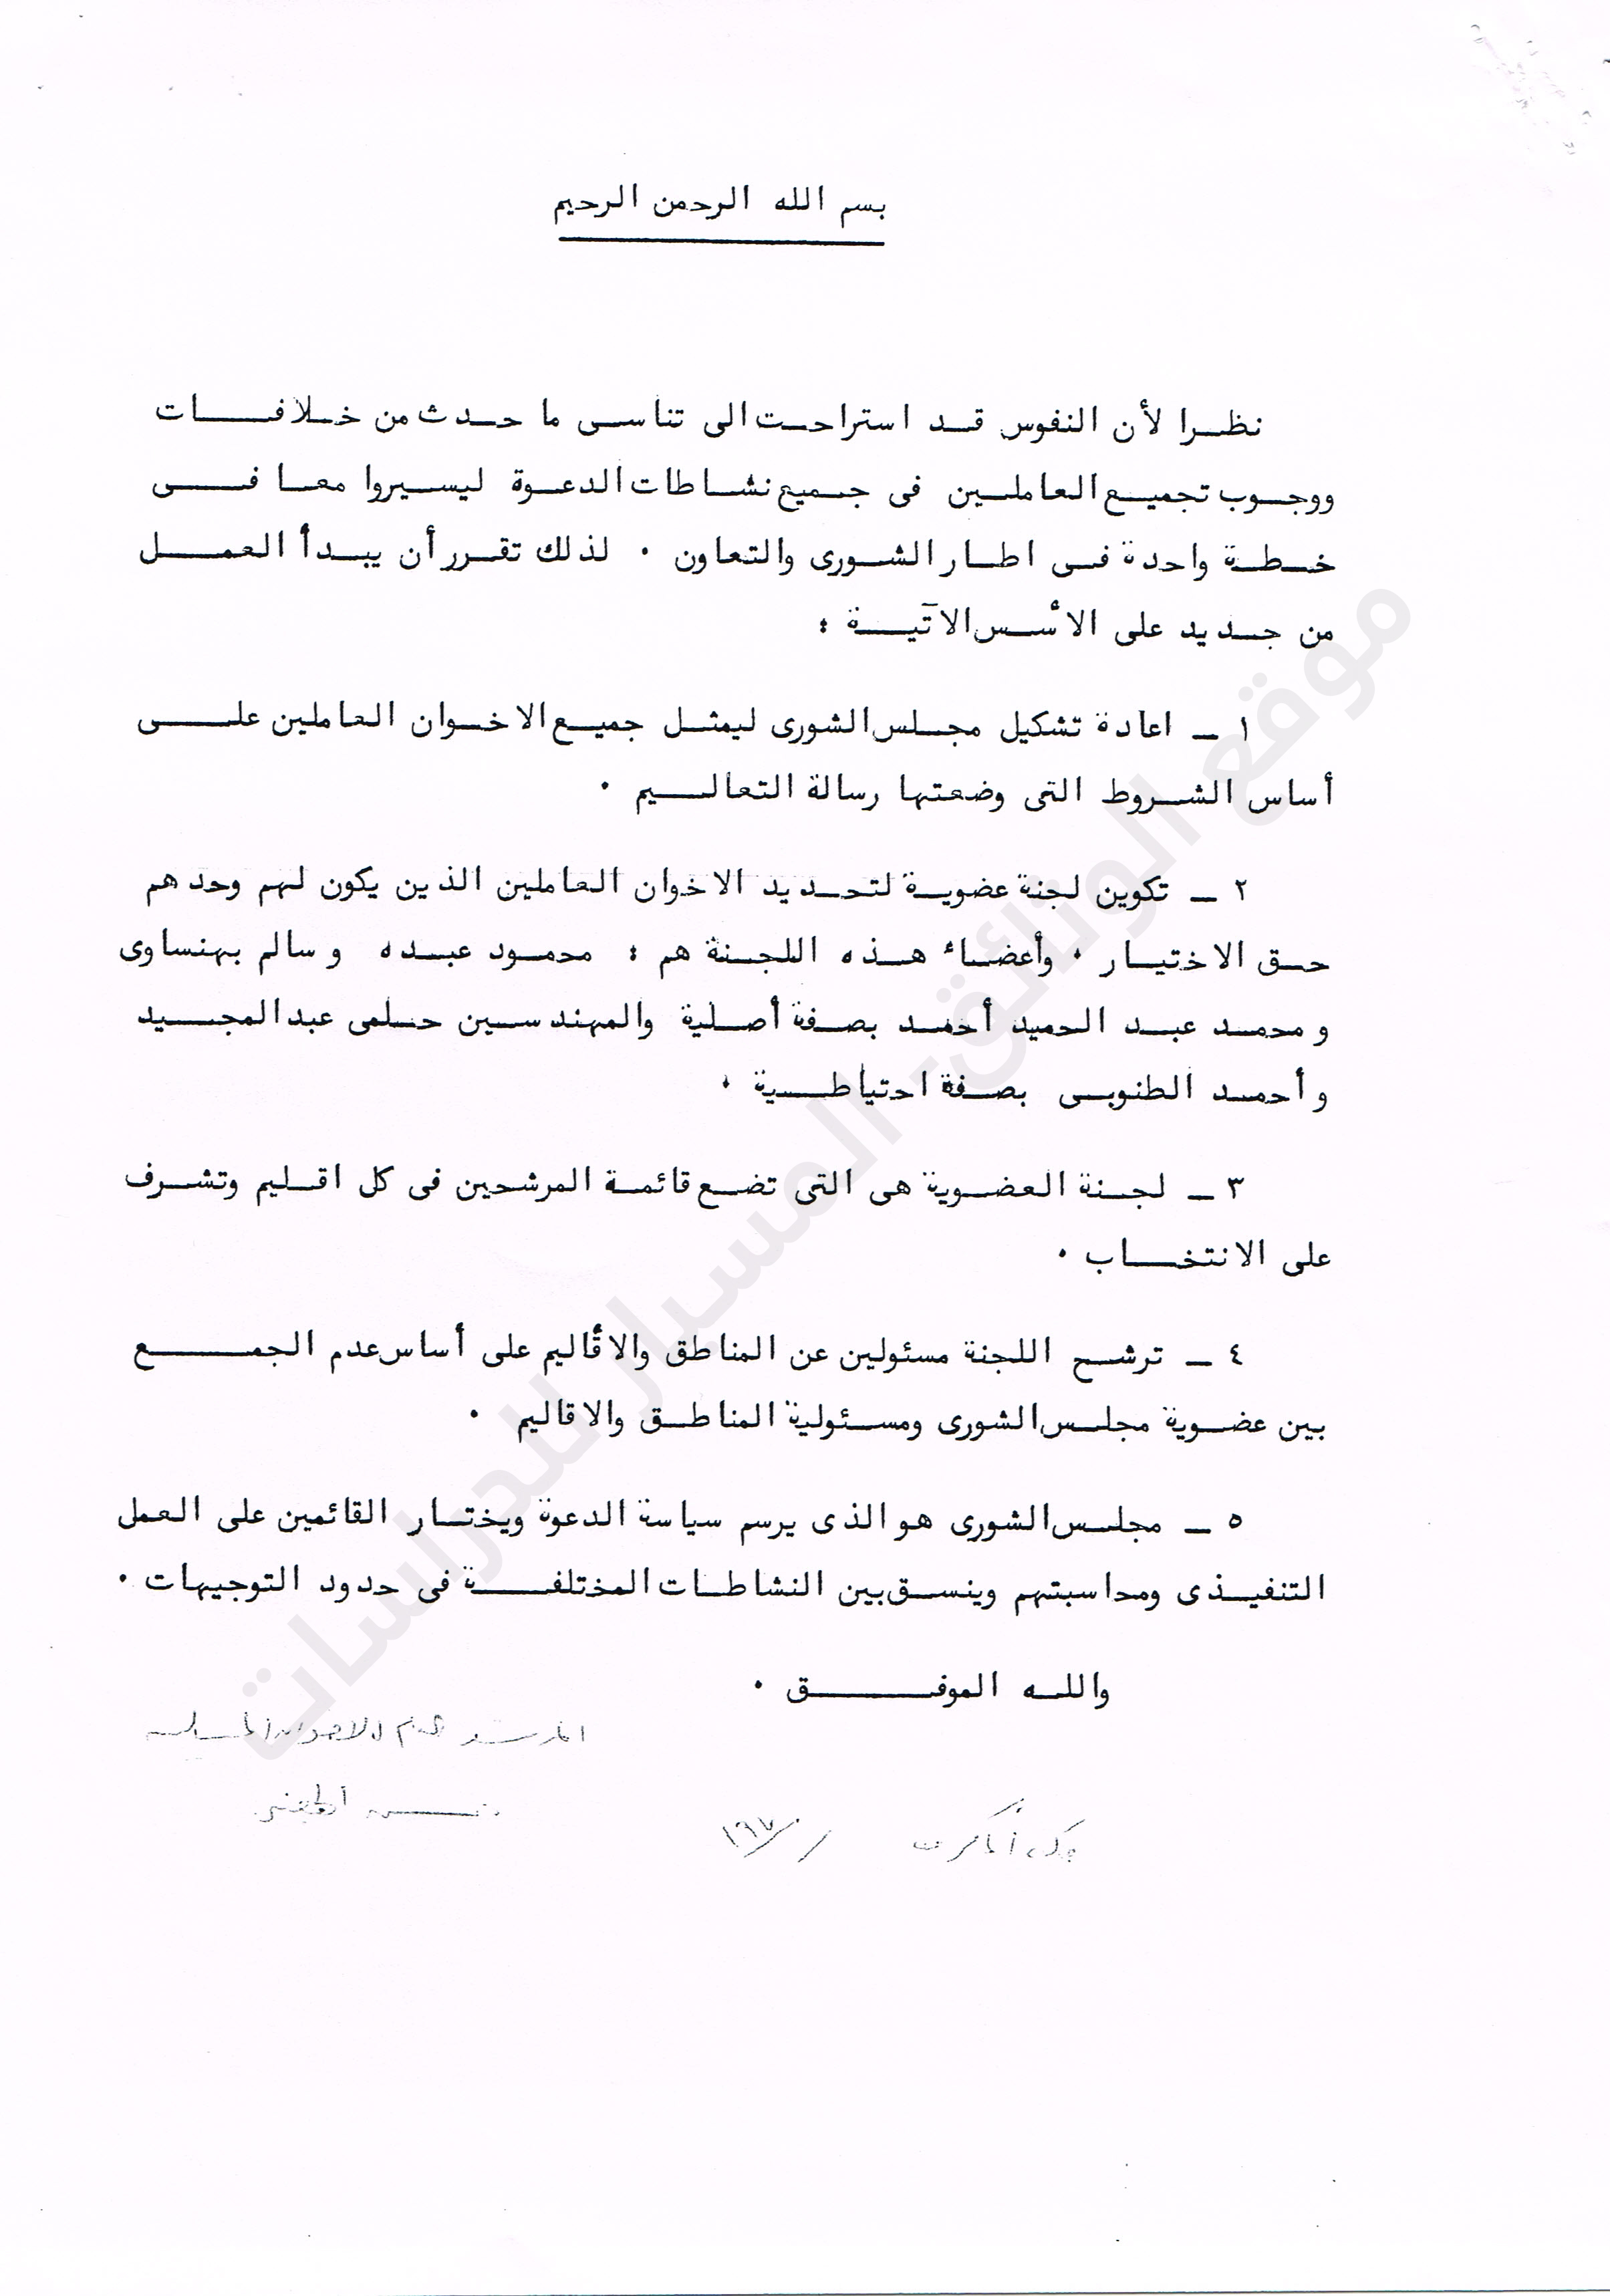 بسم الله الرحمن الرحيم
نظرا لأن النفوس قد استراحت الى تناسى ما حدث من خلافات
ووجوب تجميع العاملين فى جميع نشاطات الدعوة ليسيروا معا فى
خطة واحدة فى اطار الشورى والتعاون . لذلك تقرر أن يبدأ العمل
من جديد على الأسس الآتية :
١ - اعادة تشكيل مجلس الشورى ليمثل جميع الاخوان العاملين على
أساس الشروط التى وضعتها رسالة التعاليم .
٢ - تكوين لجنة عضوية لتحديد الاخوان العاملين الذين يكون لهم وحدهم
حق الاختيار . وأعضاء هذه اللجنة هم : محمود عبده وسالم بهنساوى
ومحمد عبد الحميد أحمد بصفة أصلية والمهندسين حلمى عبد المجيد
وأحمد الطنوبى بصفة احتياطية .
٣ - لجنة العضوية هى التى تضع قائمة المرشحين فى كل اقليم وتشرف
على الانتخاب .
٤ - ترشح اللجنة مسئولين عن المناطق والأقاليم على أساس عدم الجمع
بين عضوية مجلس الشورى ومسئولية المناطق والاقاليم .
٥ - مجلس الشورى هو الذى يرسم سياسة الدعوة ويختار القائمين على العمل
التنفيذى ومحاسبتهم وينسق بين النشاطات المختلفة فى حدود التوجيهات .
والله الموفق .
المرشد العام للاخوان المسلمين
موقع الوثائق - المسبار للدراسات